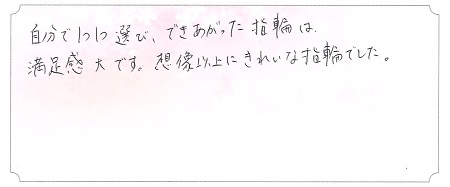 自分で1つ1つ選び、できあがった指輪は、
満足感大です。想像以上にきれいな指輪でした。